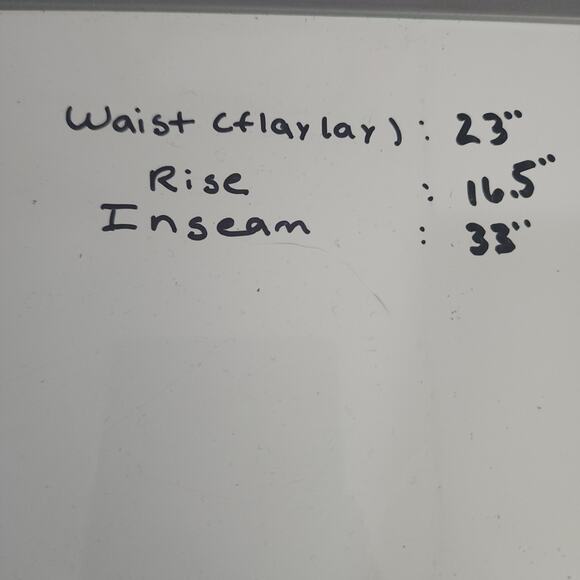 Waist (flaylay) : 23"
Rise : 16.5"
Inseam : 33"